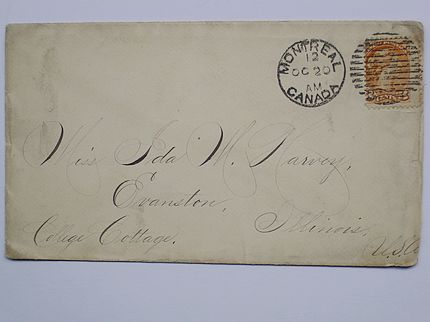 MONTREAL
12
OC 20
AM
CANADA
Miss Ida M. Harvey,
Evanston,
Illinois.
College Cottage.
U.S.